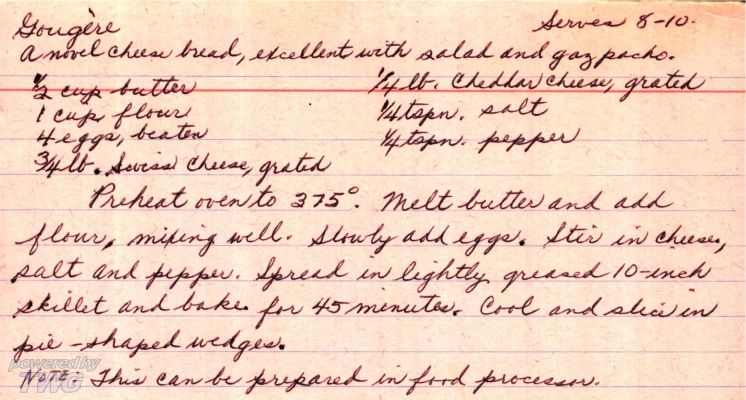 Gougère Serves 8-10.
A novel cheese bread, excellent with salad and gazpacho.
1/2 cup butter 1/4 lb. Cheddar cheese, grated
1 cup flour 1/4 tspn. salt
4 eggs, beaten 1/4 tspn. pepper
3/4 lb. Swiss cheese, grated
Preheat oven to 375°. Melt butter and add
flour, mixing well. Slowly add eggs. Stir in cheese,
salt and pepper. Spread in lightly greased 10-inch
skillet and bake for 45 minutes. Cool and slice in
pie-shaped wedges.
powered by
TWG
NOTE: This can be prepared in food processor.